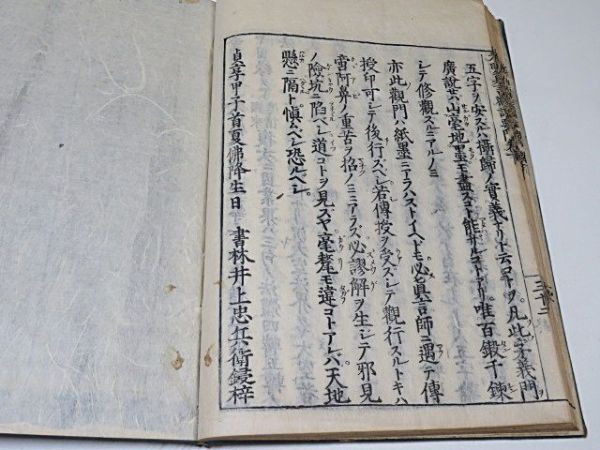 五字ヲ安スルハ攝歸ノ實義ナリト云コヲヤ。凡此字義門ヲ
廣說セハ山毫地墨モ盡スコト能サルコトアリ。唯百鍛千鍊
シテ修觀スルニアルノミ
亦此觀門ハ紙墨ニアラハストイヘトモ必眞言師ニ遇テ傳
授印可シテ後行スヘシ若傳授ヲ受スシテ觀行スルトキハ
啻阿鼻ノ重苦ヲ招ノミニアラズ必謬解ヲ生シテ邪見
ノ險坑ニ陷ベシ道コトヲ見ズヤ毫釐モ違コトアレバ天地
懸ニ隔ト愼ムベシ恐ルベシ。
貞享甲子首夏佛降生日
書林井上忠兵衛鋟梓
三十二